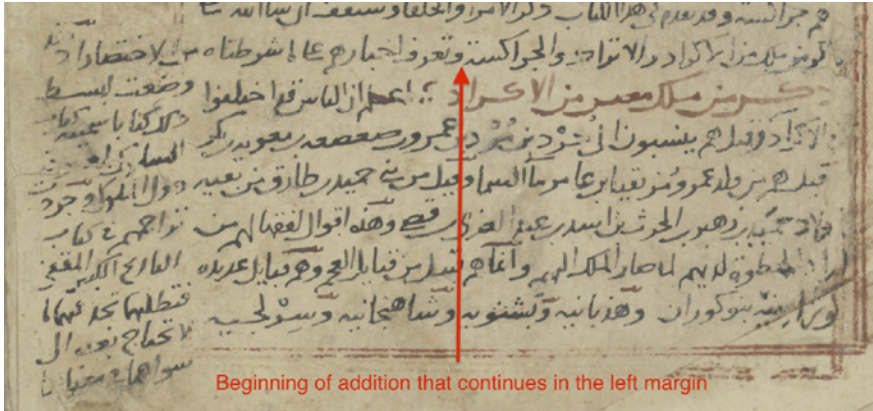 هم جراكسة وقد تقدم في هذا الكتاب ذكر الامرا والخلفا وستقف ان شا الله على
ذكر من ملك من الاكراد والاتراك والجراكسة وتعرف اخبارهم على ما شرطناه من الاختصار اذ قد
ذكر من ملك مصر من الاكراد اعلم ان الناس قد اختلفوا
الاكراد وقيل هم ينسبون الى كرد بن مرد بن عمرو بن صعصعه بن معويه بن بكر
وقيل هم من ولد عمرو مزيقيا بن عامر ما السما وقيل من بني حميد بن طارق من بقيه
اولاد حميد بن زهير بن الحرث بن اسد بن عبد العزى بن قصي وهذه اقوال الفقها لهم من
اراد الحظوة لديهم لما صار الملك اليهم وانما هم قبيل من قبايل العجم وهم قبايل عديده
كورانيه بنو كوران وهذبانيه وبشتويه وشاهنجانيه وسرلجيه
وضعت لبسط
ذلك كتابا سميته كتاب
السلوك لمعرفة
دول الملوك وجردت
تراجمهم في كتاب
التاريخ الكبير المقفى
فتطلبهما تجد فيهما ما
لا تحتاج بعده الى
سواهما في معناهما
Beginning of addition that continues in the left margin